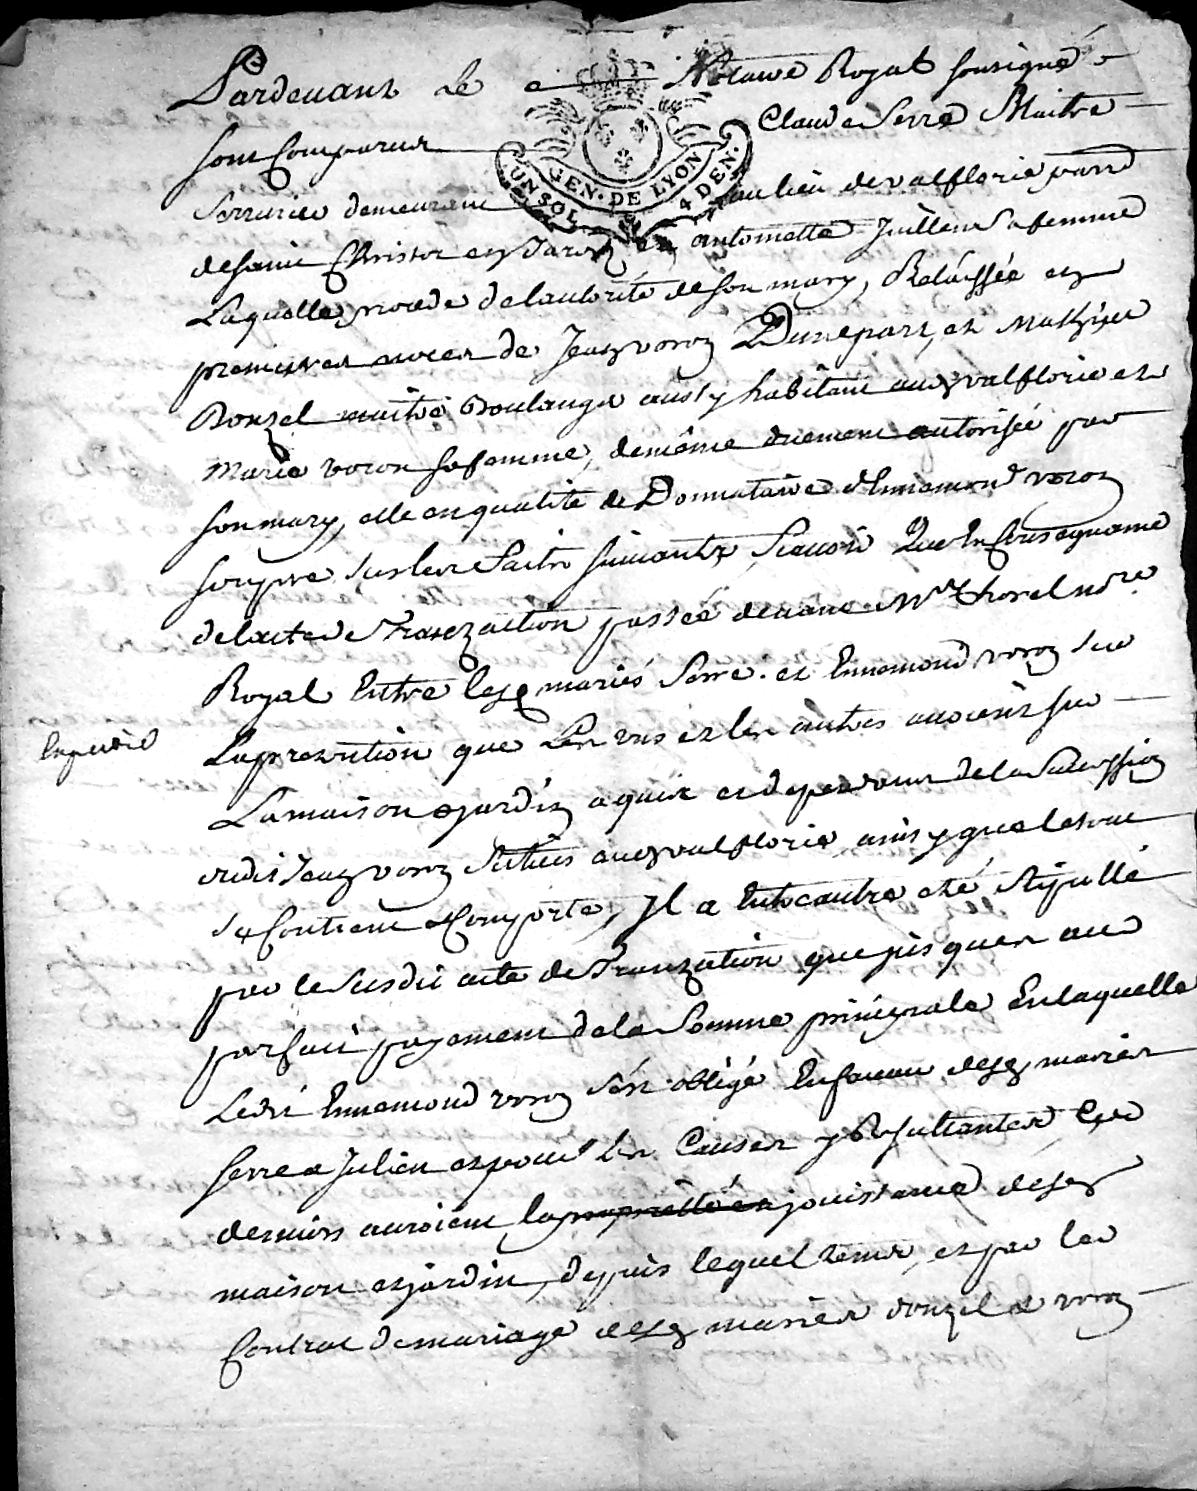 Pardevant Le Notaire Royal sousigné
sont Comparus Claude Serre Maitre
GEN. DE LYON
UN SOL. 4 DEN.
Serrurier demeurant au lieu de valflorie parr
de saint Christot en Jaret et antoinette Juillien sa femme
Laquelle procede de lautorité de son mary, Relaissée en
premieres noces de Jean voron Dunepart, et Mathieu
Donzel maitre Boulanger aussy habitant audt valflorie et
Marie voron sa femme, de même duement autorisée par
son mary, elle en qualité de Donnataire d'Ennemond voron
son pere sur les faits suivants, Scavoir Que En Consequance
de lacte de Tranzaction passée devant Me Thorel nore
Royal Entre lesd mariés Serre et Ennemond voron sur
Lapretention que Les uns et les autres avoient sur
La maison & jardin aquis et dependant de la Succession
dudit Jean voron Scitués audt valflorie, ainsy que le tout
se Contient & Comporte, Il a Entre autre eté Stipullé
par le Susdit acte de Tranzaction que jusques au
parfait payement de la Somme prinçipale En laquelle
Ledit Ennemond voron s'est obligé En faveur desd mariés
Serre & Julien et pour les Causes y Resultantes Ces
derniers auroient la proprietté et jouissance desd
maison et jardin, depuis lequel temps, et par le
Contrat de mariage desd mariés donzel & voron